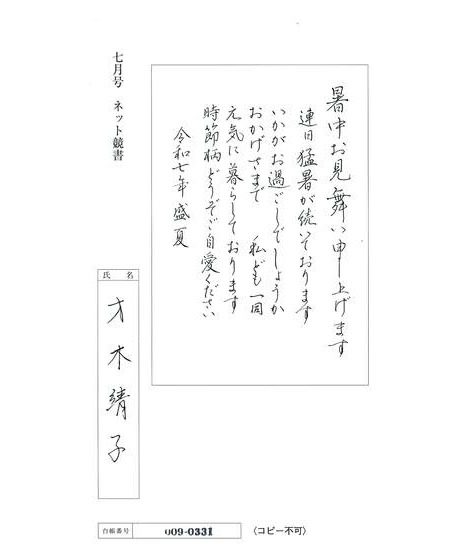 七月号　ネット競書
暑中お見舞い申し上げます
連日猛暑が続いております
いかがお過ごしでしょうか
おかげさまで　私ども一同
元気に暮らしております
時節柄どうぞご自愛ください
令和七年盛夏
氏名
才木靖子
台帳番号
009-0331
〈コピー不可〉